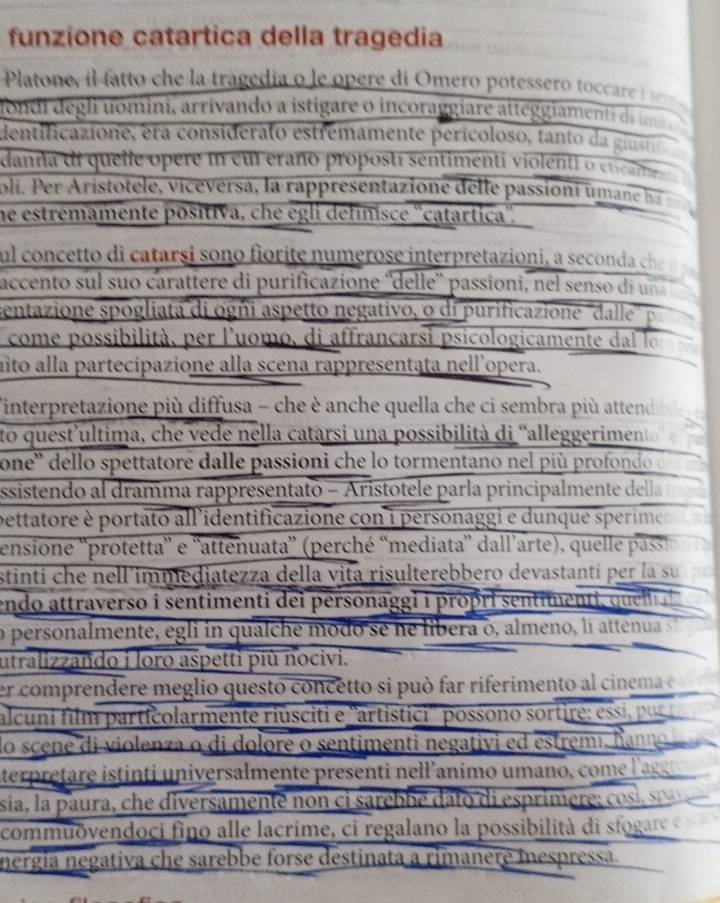 funzione catartica della tragedia
Platone, il fatto che la tragedia o le opere di Omero potessero toccare i
fondi degli uomini, arrivando a istigare o incoraggiare atteggiamenti di
dentificazione, era considerato estremamente pericoloso, tanto da
danna di quelle opere in cui erano proposti sentimenti violenti o
oli. Per Aristotele, viceversa, la rappresentazione delle passioni umane ha
ne estremamente positiva, che egli definisce "catartica".
ul concetto di catarsi sono fiorite numerose interpretazioni, a seconda che
accento sul suo carattere di purificazione "delle" passioni, nel senso di una
sentazione spogliata di ogni aspetto negativo, o di purificazione "dalle"
come possibilità, per l'uomo, di affrancarsi psicologicamente dal
aito alla partecipazione alla scena rappresentata nell'opera.
'interpretazione più diffusa – che è anche quella che ci sembra più
to quest'ultima, che vede nella catarsi una possibilità di "alleggerimento" e
one" dello spettatore dalle passioni che lo tormentano nel più profondo
ssistendo al dramma rappresentato – Aristotele parla principalmente della
pettatore è portato all'identificazione con i personaggi e dunque
ensione "protetta" e "attenuata" (perché "mediata" dall'arte), quelle
stinti che nell'immediatezza della vita risulterebbero devastanti per la su
endo attraverso i sentimenti dei personaggi i propri sentimenti, quelli
o personalmente, egli in qualche modo se ne libera o, almeno, li attenua
utralizzando i loro aspetti più nocivi.
er comprendere meglio questo concetto si può far riferimento al cinema e
alcuni film particolarmente riusciti e "artistici" possono sortire: essi, pur
lo scene di violenza o di dolore o sentimenti negativi ed estremi, hanno
terpretare istinti universalmente presenti nell'animo umano, come
sia, la paura, che diversamente non ci sarebbe dato di esprimere; così,
commuovendoci fino alle lacrime, ci regalano la possibilità di sfogare e
nergia negativa che sarebbe forse destinata a rimanere inespressa.